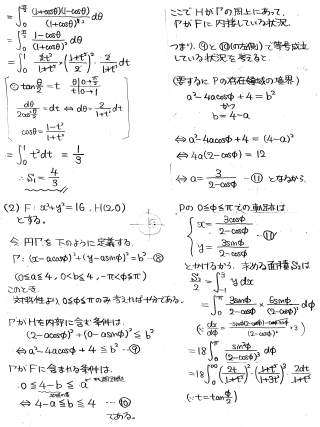 = ∫₀^{π/2} (1+cosθ)(1-cosθ)/(1+cosθ)³ dθ
= ∫₀^{π/2} (1-cosθ)/(1+cosθ)² dθ
= ∫₀¹ 2t²/(1+t²) × ((1+t²)/2)² · 2/(1+t²) dt
tan θ/2 = t
θ | 0 → π/2
t | 0 → 1
dθ/(2cos² θ/2) = dt ⇔ dθ = 2/(1+t²) dt
cosθ = (1-t²)/(1+t²)
= ∫₀¹ t² dt = 1/3
∴ S₁ = 4/3
(2) F: x²+y²=16, H(2,0)
とする。
今 円Pを下のように定義する
P: (x-acosφ)²+(y-asinφ)²=b² …⑧
(0≤a≤4, 0<b≤4, -π<φ≤π)
このとき
対称性より, 0≤φ≤πのみ考えれば十分である。
PがHを内部に含む条件は
(2-acosφ)²+(0-asinφ)² ≤ b²
⇔ a²-4acosφ+4 ≤ b² …⑨
PがFに含まれる条件は
0 ≤ 4-b ≤ a
⇔ 4-a ≤ b ≤ 4 …⑩
である。
ここで HがPの周上にあって,
PがFに内接している状況,
つまり, ⑨と⑩(の左側)で等号成立
している状況を考えると
(要するにPの存在領域の境界)
a²-4acosφ+4=b²
かつ
b=4-a
⇔ a²-4acosφ+4=(4-a)²
⇔ 4a(2-cosφ)=12
⇔ a = 3/(2-cosφ) …⑪ となるから,
Pの0≤φ≤πでの軌跡は
x = 3cosφ/(2-cosφ)
y = 3sinφ/(2-cosφ)
とかけるから, 求める面積S₂は
S₂/2 = ∫₋₁³ y dx
= ∫₀^π 3sinφ/(2-cosφ) × 6sinφ/(2-cosφ)² dφ
= 18 ∫₀^π sin²φ/(2-cosφ)³ dφ
= 18 ∫₀^∞ (2t/(1+t²))² · ((1+t²)/(1+3t²))³ · 2dt/(1+t²)
(∵ t = tan φ/2)